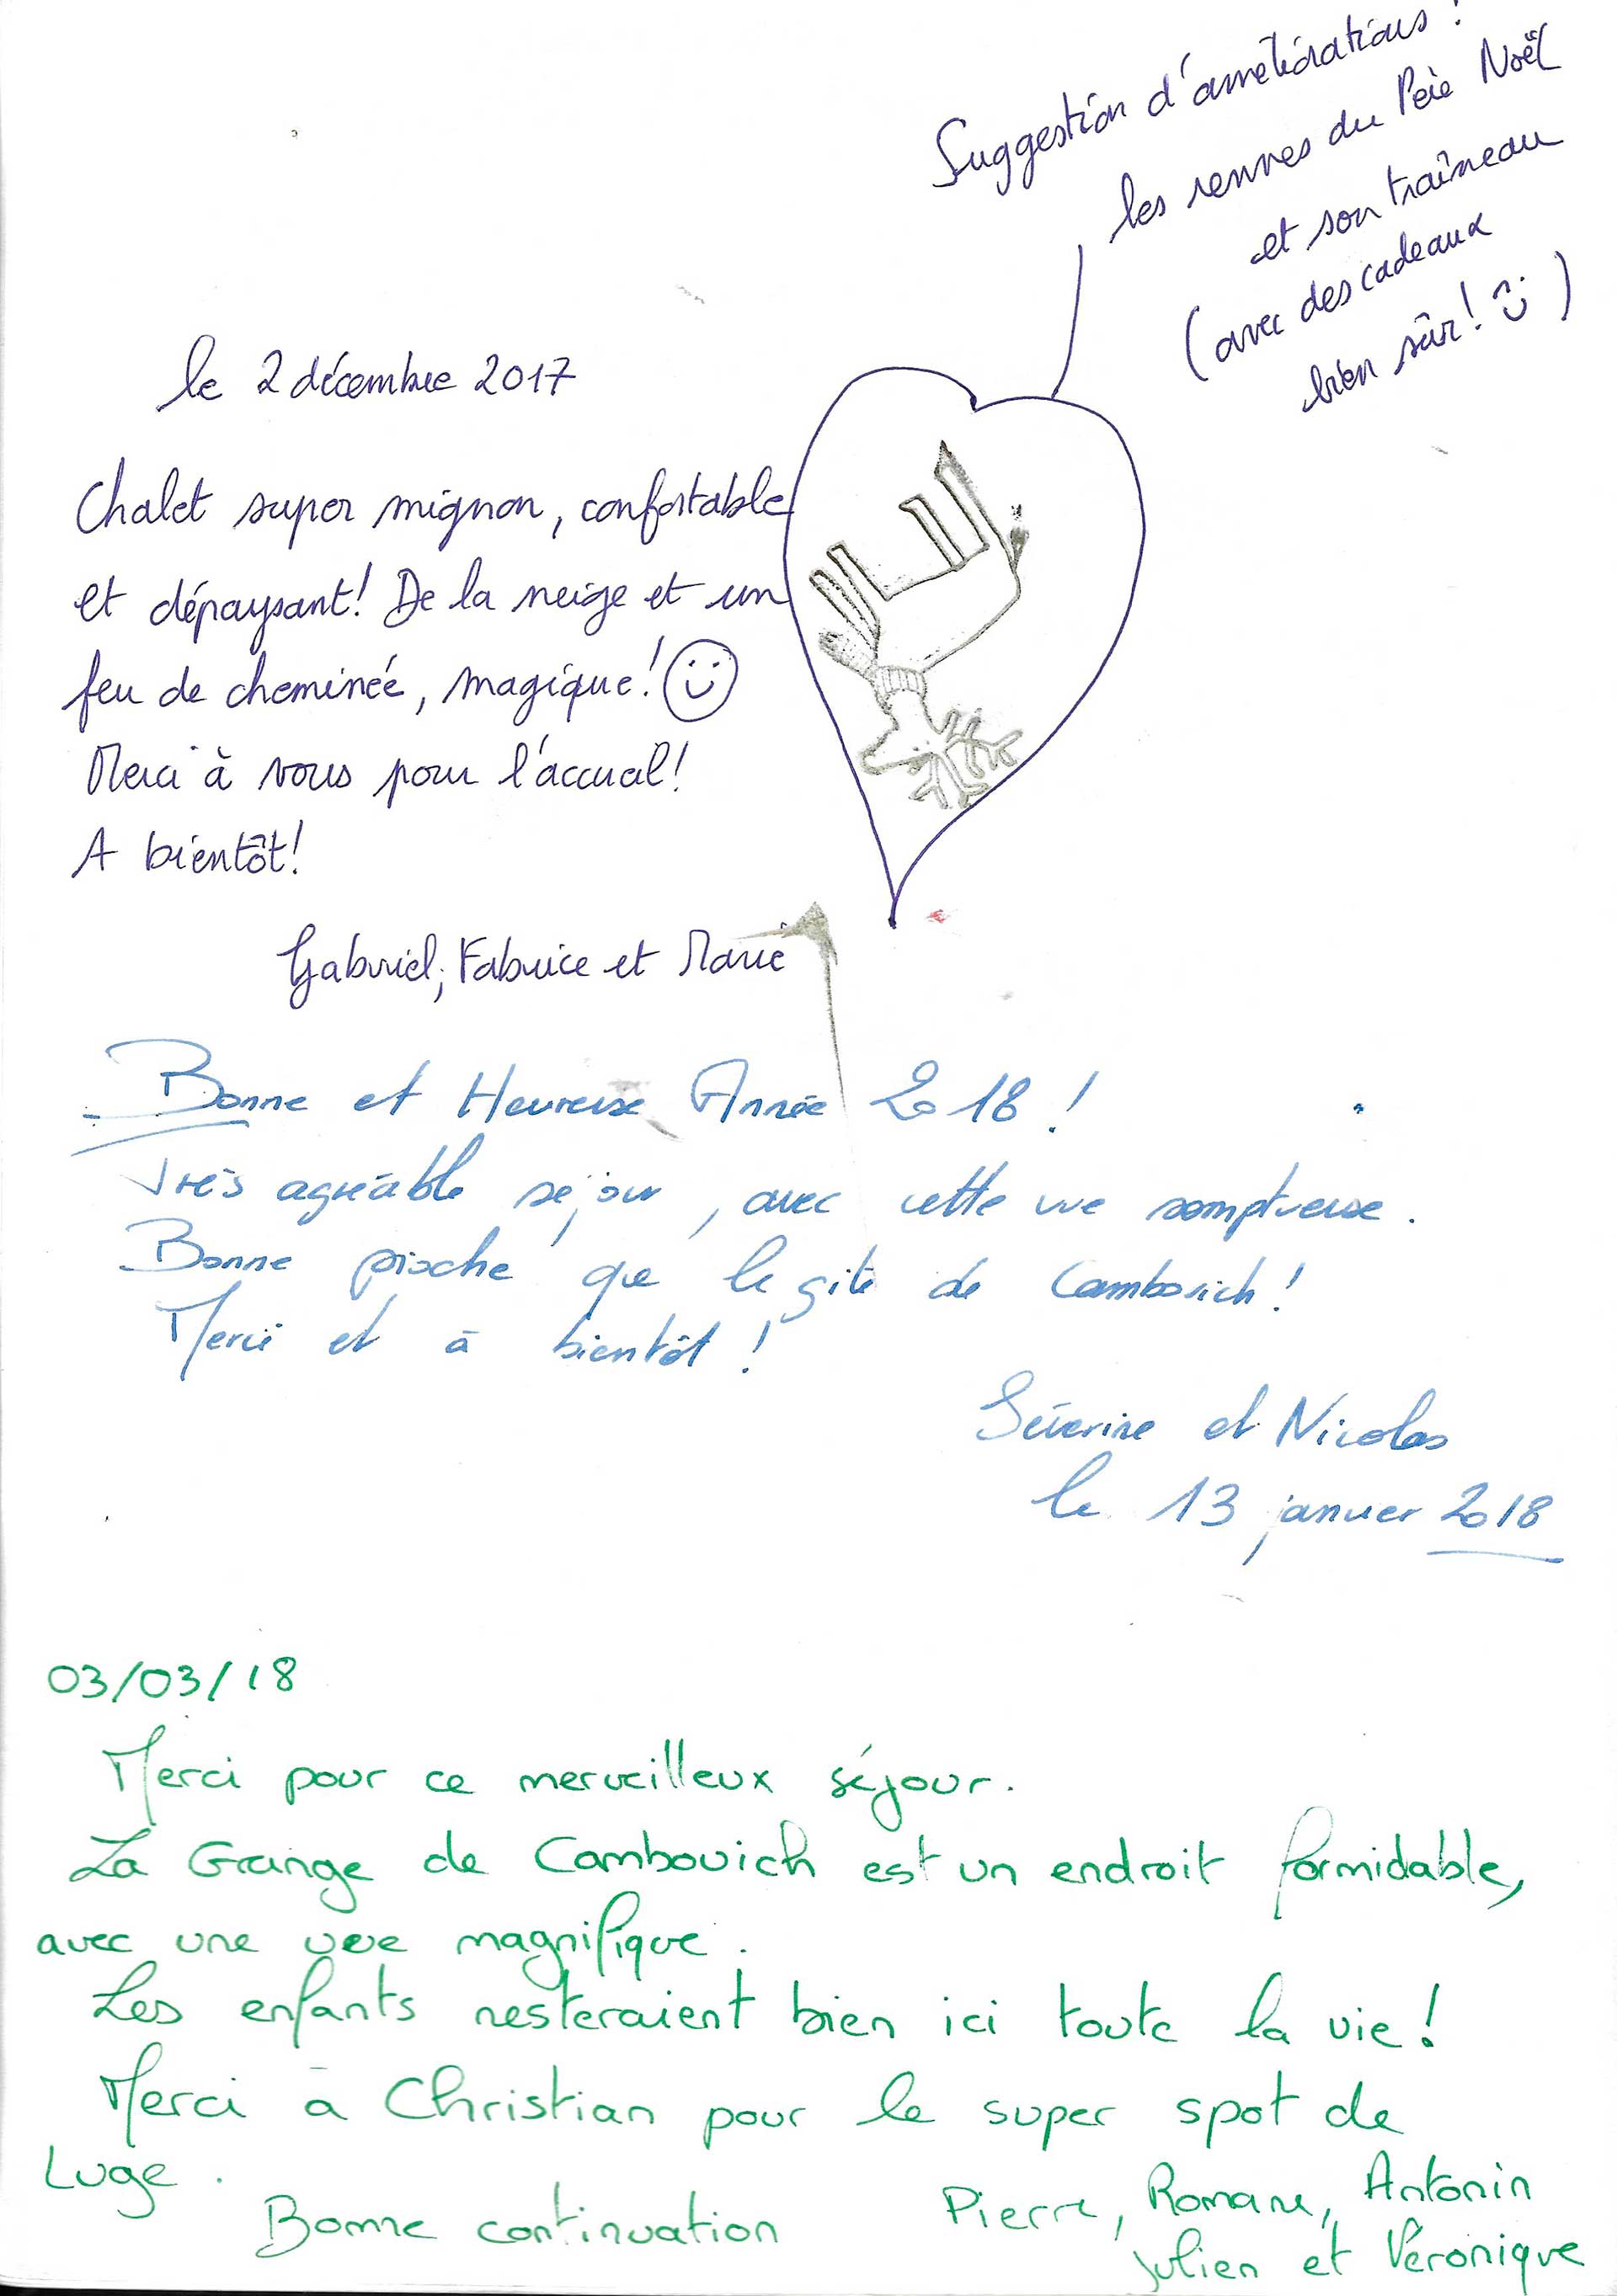 Suggestion d'améliorations :
les rennes du Père Noël
et son traîneau
(avec des cadeaux
bien sûr! )
le 2 décembre 2017
Chalet super mignon, confortable
et dépaysant! De la neige et un
feu de cheminée, magique!
Merci à vous pour l'accueil!
A bientôt!
Gabriel, Fabrice et Marie
Bonne et Heureuse Année 2018 !
Très agréable séjour, avec cette vue somptueuse.
Bonne pioche que le gîte de Cambouich !
Merci et à bientôt !
Séverine et Nicolas
le 13 janvier 2018
03/03/18
Merci pour ce merveilleux séjour.
La Grange de Cambouich est un endroit formidable,
avec une vue magnifique.
Les enfants resteraient bien ici toute la vie!
Merci à Christian pour le super spot de
Luge.
Bonne continuation
Pierre, Romane, Antonin
Julien et Véronique